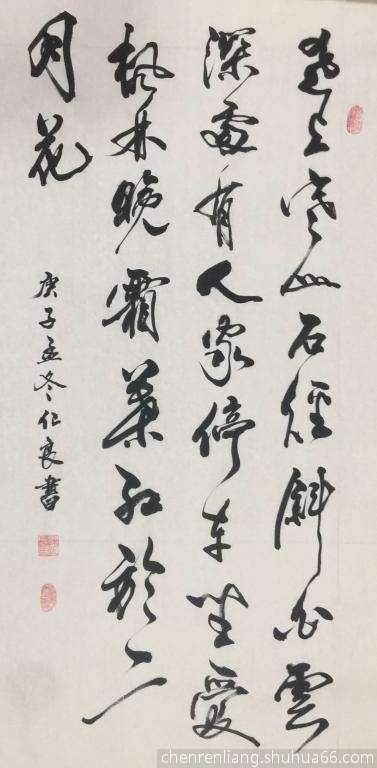 遠上寒山石徑斜白雲
深處有人家停車坐愛
楓林晚霜葉紅於二
月花
庚子孟冬仁良書
chenrenliang.shuhua66.com